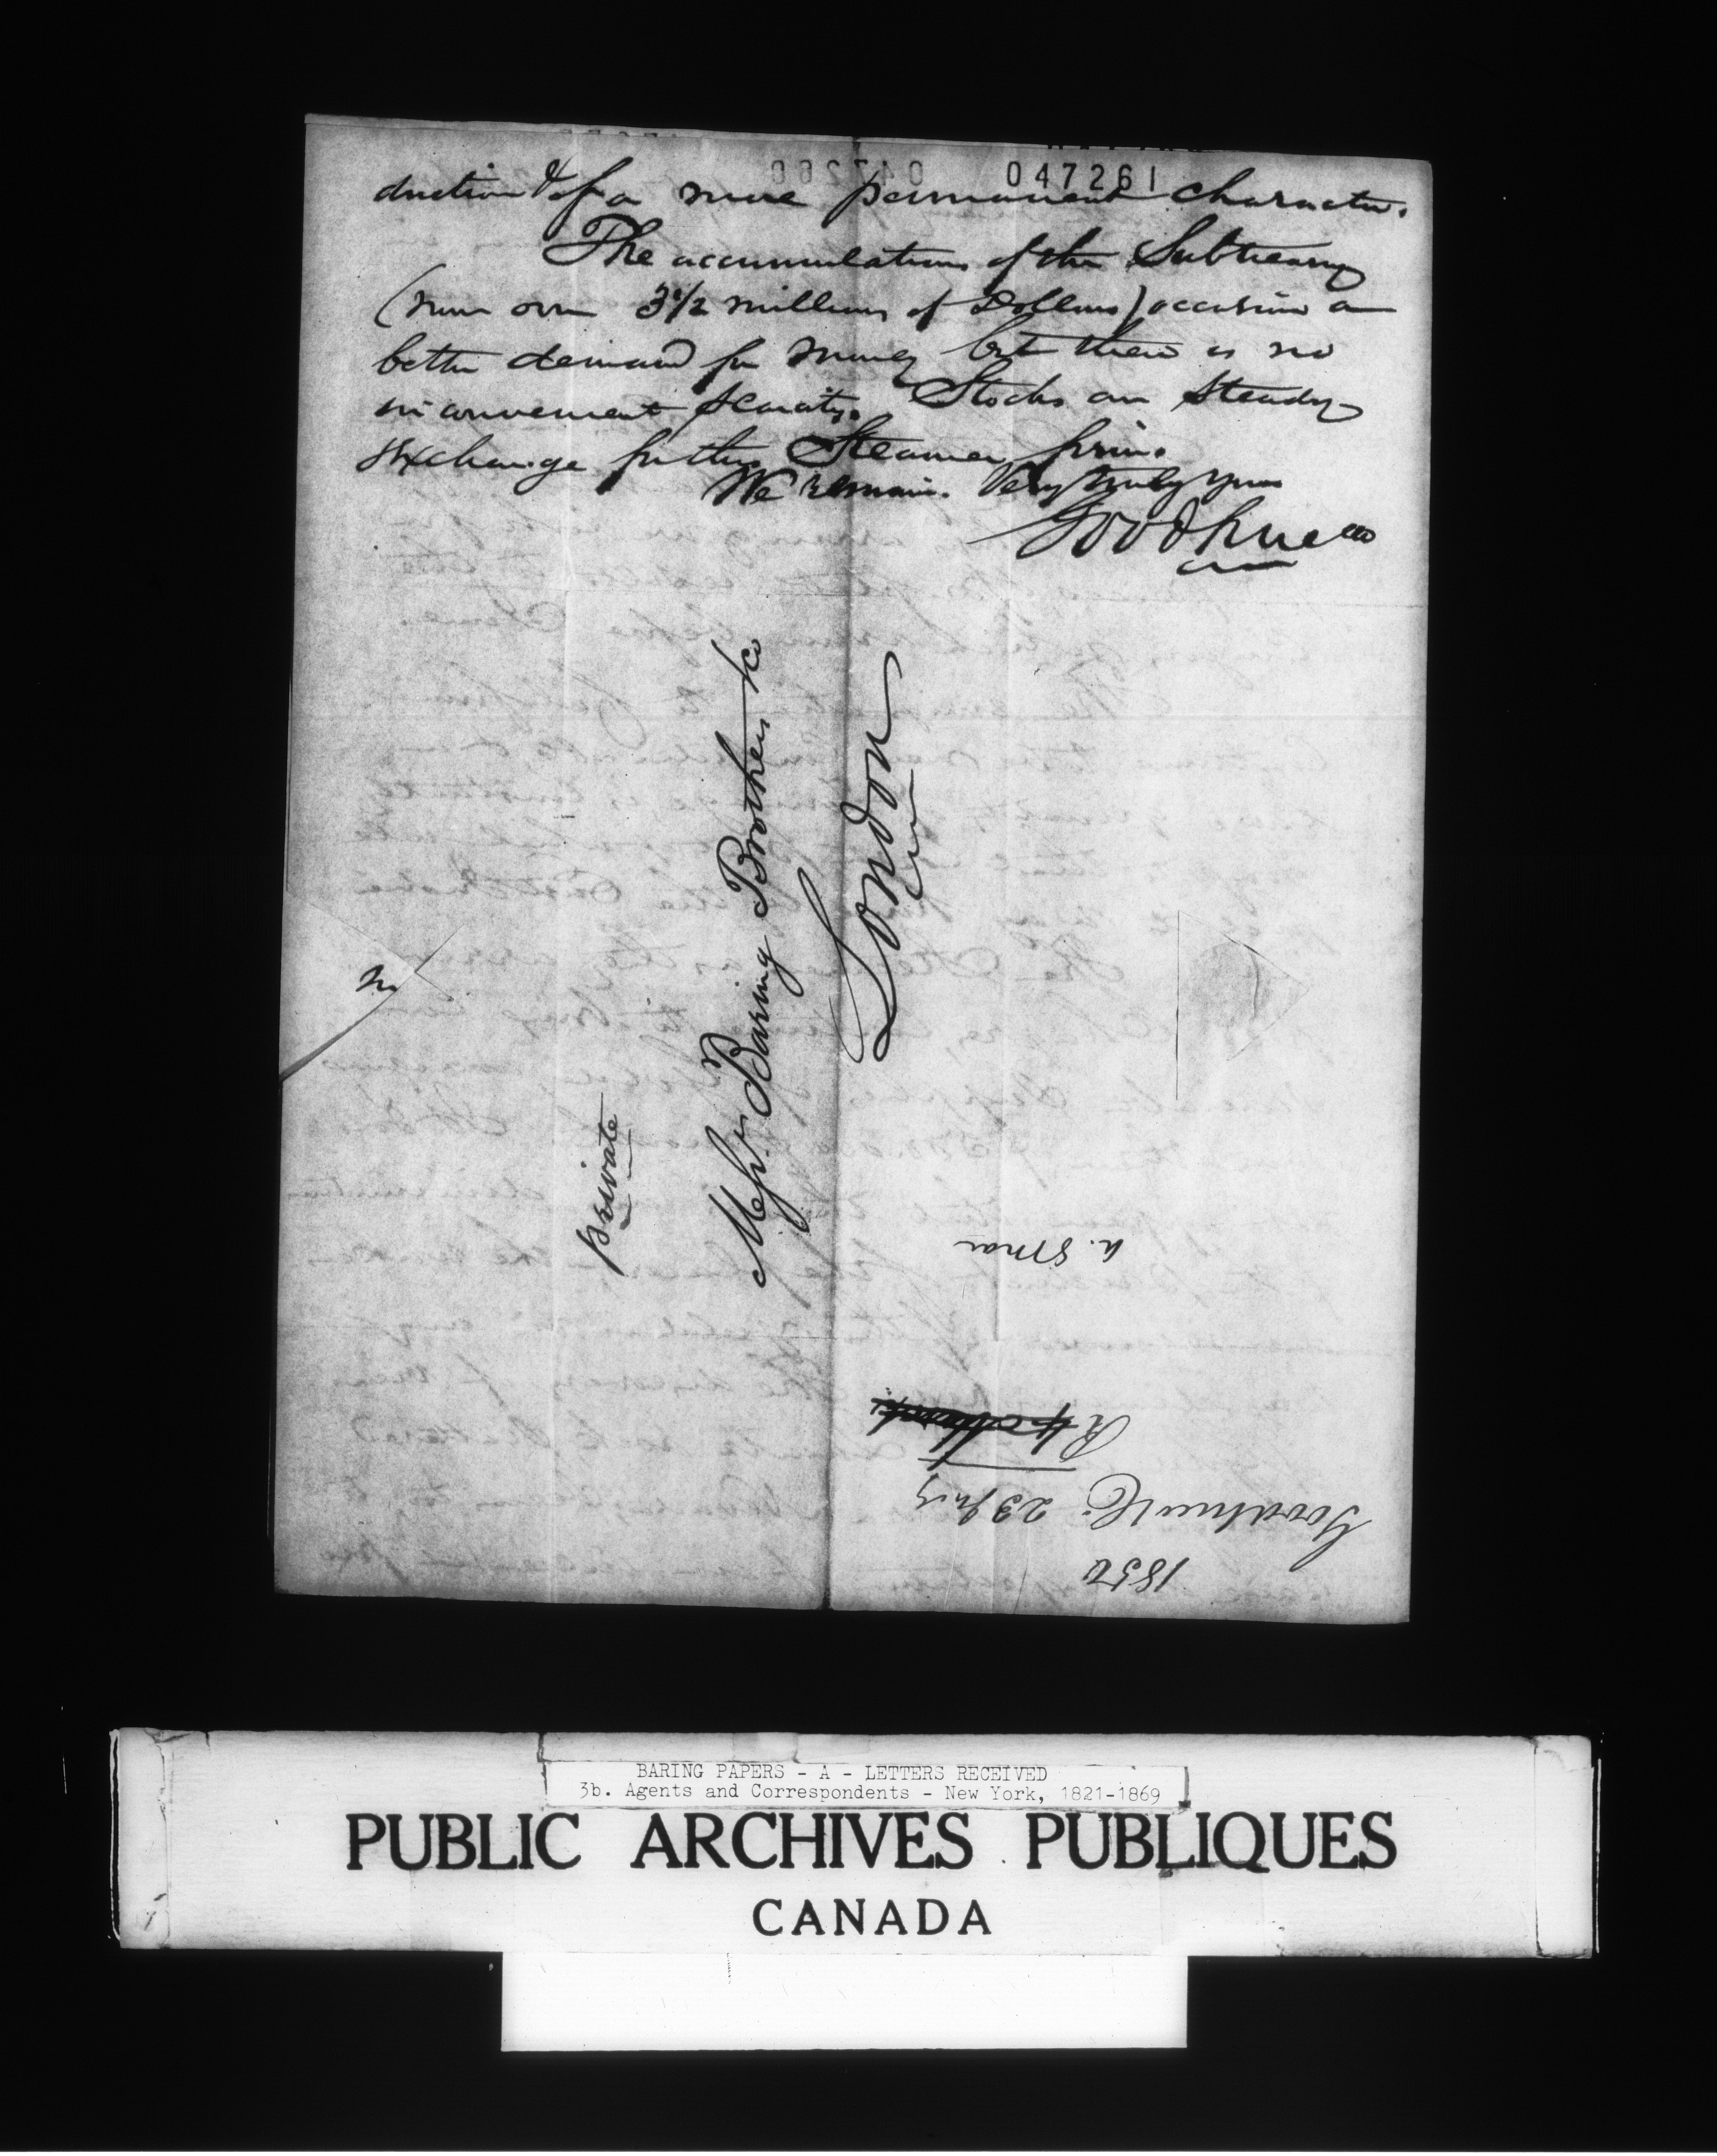 047261
duction & of a more permanent character.
The accumulations of the Subtreasury
(now over 3 1/2 millions of Dollars) occasion a
better demand for money but there is no
inconvenient scarcity. Stocks are steady
Exchange for this Steamer firm.
We remain. Very truly yours
Goodhue & Co
Private
Messrs Baring Brothers & Co
London
1850
Goodhue & Co 23
R
a. 8 Mar
BARING PAPERS - A - LETTERS RECEIVED
3b. Agents and Correspondents - New York, 1821-1869
PUBLIC ARCHIVES PUBLIQUES
CANADA